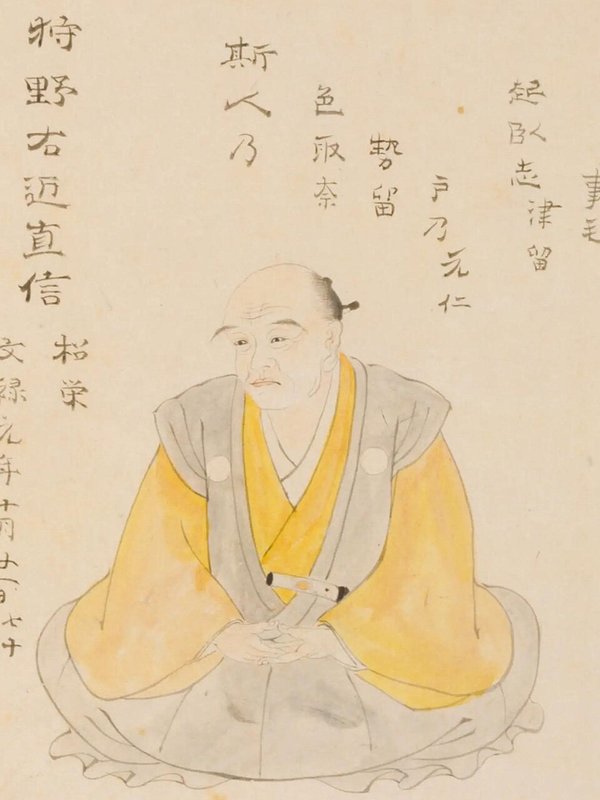 狩野右近直信
松栄
文禄元年十月
七十
斯人乃
色取奈
勢留
戸乃元仁
起臥志
津留
事毛